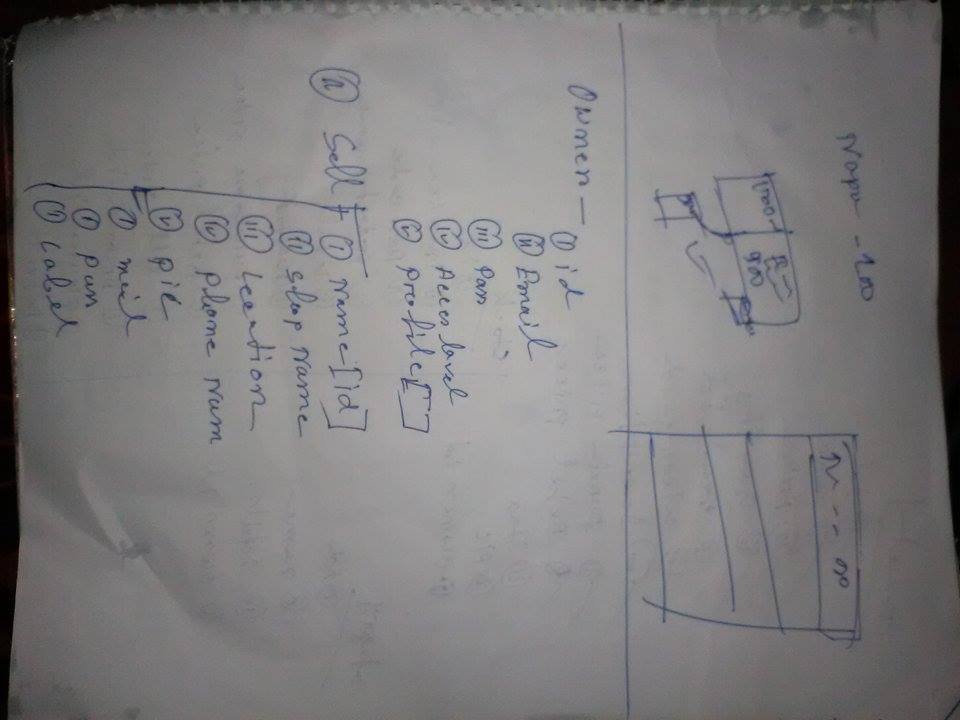 Napa - 100
900
N -- 00
Owner -
(i) id
(ii) Email
(iii) Pas
(iv) Acces level
(v) Profile[ ]
Sell
(i) Name [id]
(ii) Shop Name
(iii) Location
(iv) Phone Num
(v) Pic
mail
Pas
Label